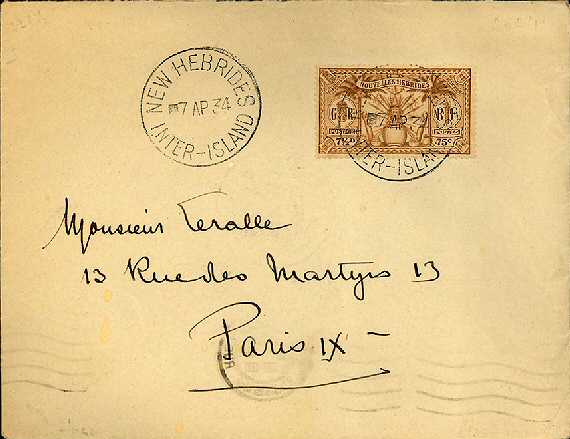 NEW HEBRIDES
7 AP 34
INTER-ISLAND
NOUVELLES HEBRIDES
G R
R F
POSTES
7½D
75c
7 AP 34
INTER-ISLAND
Monsieur Teralle
13 Rue des Martyrs 13
Paris IX